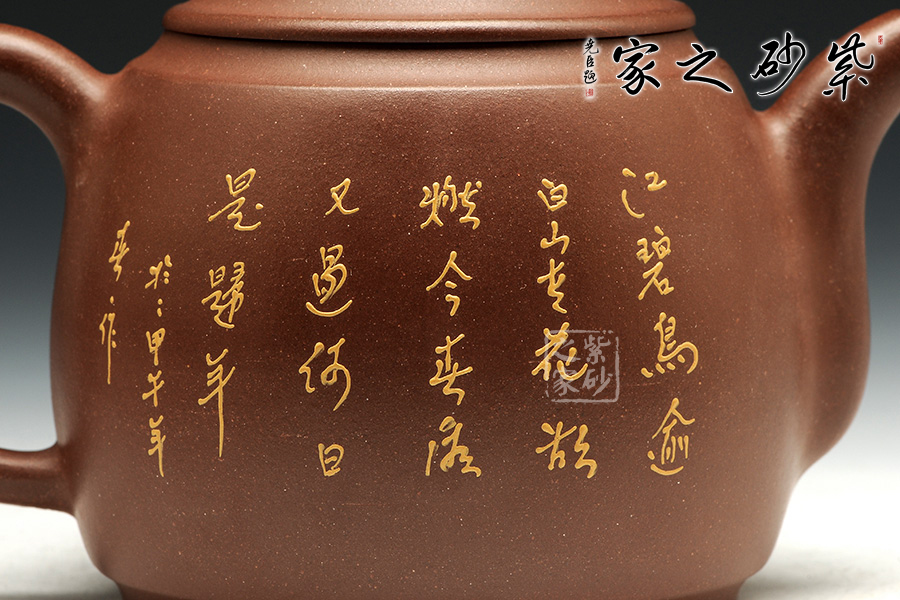 紫砂之家
堯臣題
江碧鳥逾
白山青花欲
燃今春看
又過何日
是歸年
於甲午年
春作
紫砂之家